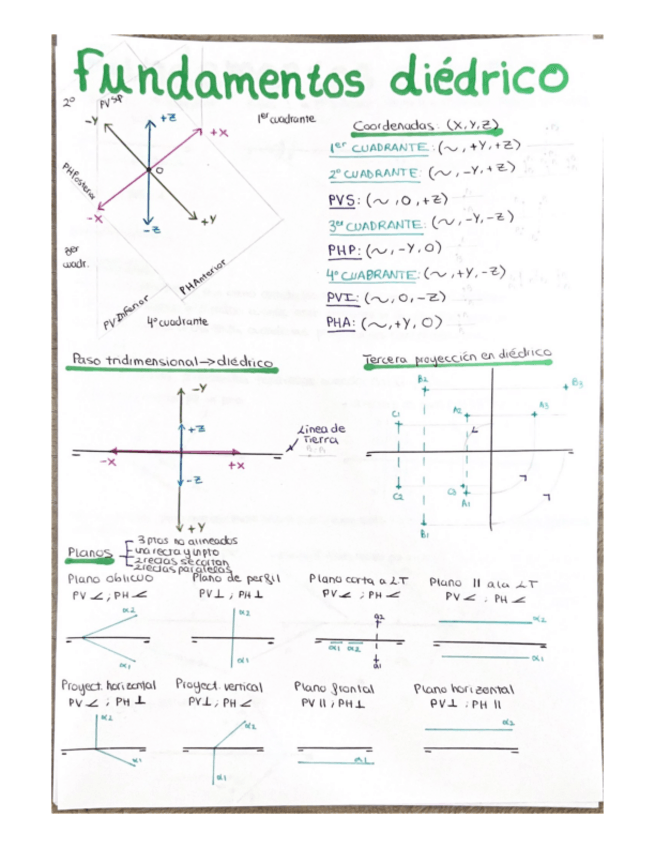 Fundamentos diédrico
2º
PVSP
1er cuadrante
-Y
+Z
+X
O
PHPosterior
-X
-Z
+Y
3er
cuadr.
PHAnterior
PVInferior
4º cuadrante
Coordenadas: (X,Y,Z)
1er CUADRANTE: (~, +Y, +Z)
2º CUADRANTE: (~, -Y, +Z)
PVS: (~, 0, +Z)
3er CUADRANTE: (~, -Y, -Z)
PHP: (~, -Y, 0)
4º CUADRANTE: (~, +Y, -Z)
PVI: (~, 0, -Z)
PHA: (~, +Y, 0)
Paso tridimensional → diédrico
-Y
+Z
Línea de
Tierra
-X
+X
-Z
+Y
Tercera proyección en diédrico
B2
B3
C1
A2
A3
C2
C3
A1
B1
Planos
3 ptos no alineados
una recta y un pto
2 rectas se cortan
2 rectas paralelas
Plano oblicuo
PV ∠ ; PH ∠
α2
α1
Plano de perfil
PV ⊥ ; PH ⊥
α2
α1
Plano corta a LT
PV ∠ ; PH ∠
a2
α1 α2
a1
Plano || a la LT
PV ∠ ; PH ∠
α2
α1
Proyect. horizontal
PV ∠ ; PH ⊥
α2
α1
Proyect. vertical
PV ⊥ ; PH ∠
α2
α1
Plano frontal
PV || ; PH ⊥
α1
Plano horizontal
PV ⊥ ; PH ||
α2